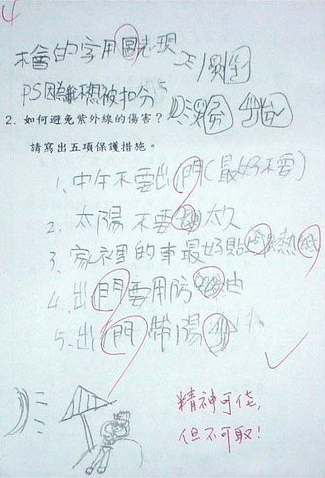 4
不會的字用圖表現
PS因為不想被扣分
2. 如何避免紫外線的傷害?
請寫出五項保護措施。
1、中午不要出門(最好不要)
2. 太陽不要太久
3、家裡的車最好貼熱紙
4、出門要用防
5、出門帶陽
精神可佳,
但不可取!